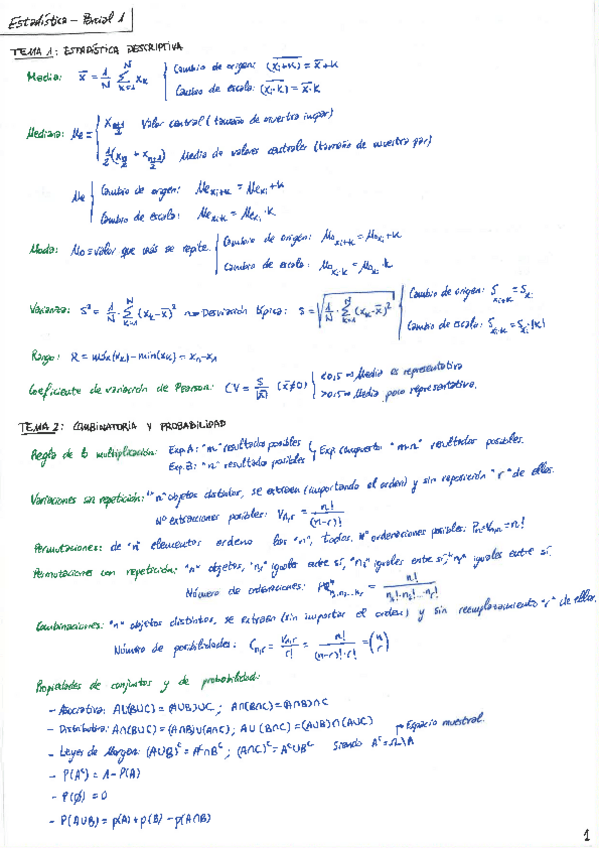 Estadística - Parcial 1
TEMA 1: ESTADÍSTICA DESCRIPTIVA
Media: x̄ = 1/N Σ_{k=1}^{N} x_k { Cambio de origen: \overline{(x_i+k)} = x̄+k
Cambio de escala: \overline{(x_i·k)} = x̄·k
Mediana: Me = { x_{(n+1)/2} Valor central (tamaño de muestra impar)
1/2(x_{n/2} + x_{n/2+1}) Media de valores centrales (tamaño de muestra par)
Me { Cambio de origen: Me_{x_i+k} = Me_{x_i}+k
Cambio de escala: Me_{x_i·k} = Me_{x_i}·k
Moda: Mo = valor que más se repite. { Cambio de origen: Mo_{x_i+k} = Mo_{x_i}+k
Cambio de escala: Mo_{x_i·k} = Mo_{x_i}·k
Varianza: S² = 1/N · Σ_{k=1}^{N} (x_k-x̄)² ⇒ Desviación típica: S = √(1/N · Σ_{k=1}^{N} (x_k-x̄)²) { Cambio de origen: S_{x_i+k} = S_{x_i}
Cambio de escala: S_{x_i·k} = S_{x_i}·|k|
Rango: R = máx(x_k) - min(x_k) = x_n - x_1
Coeficiente de variación de Pearson: CV = S/|x̄| (x̄≠0) { <0,5 ⇒ Media es representativa
>0,5 ⇒ Media poco representativa.
TEMA 2: COMBINATORIA Y PROBABILIDAD
Regla de la multiplicación: Exp. A: "m" resultados posibles } Exp. compuesto "m·n" resultados posibles.
Exp. B: "n" resultados posibles
Variaciones sin repetición: "n" objetos distintos, se extraen (importando el orden) y sin reposición "r" de ellos.
Nº extracciones posibles: V_{n,r} = n!/(n-r)!
Permutaciones: de "n" elementos ordeno los "n", todos. Nº ordenaciones posibles: P_n = V_{n,n} = n!
Permutaciones con repetición: "n" objetos, "n_1" iguales entre sí, "n_2" iguales entre sí, "n_r" iguales entre sí.
Número de ordenaciones: PR^n_{n_1,n_2...n_r} = n!/(n_1!·n_2!...n_r!)
Combinaciones: "n" objetos distintos, se extraen (sin importar el orden) y sin reemplazamiento "r" de ellos.
Número de posibilidades: C_{n,r} = V_{n,r}/r! = n!/((n-r)!·r!) = (n r)
Propiedades de conjuntos y de probabilidad:
- Asociativa: AU(BUC) = (AUB)UC ; A∩(B∩C) = (A∩B)∩C
- Distributiva: A∩(BUC) = (A∩B)U(A∩C) ; AU(B∩C) = (AUB)∩(AUC)
- Leyes de Morgan: (AUB)^c = A^c∩B^c ; (A∩C)^c = A^cUB^c Siendo A^c = Ω\A → Espacio muestral.
- P(A^c) = 1-P(A)
- P(∅) = 0
- P(AUB) = p(A) + p(B) - p(A∩B)
1